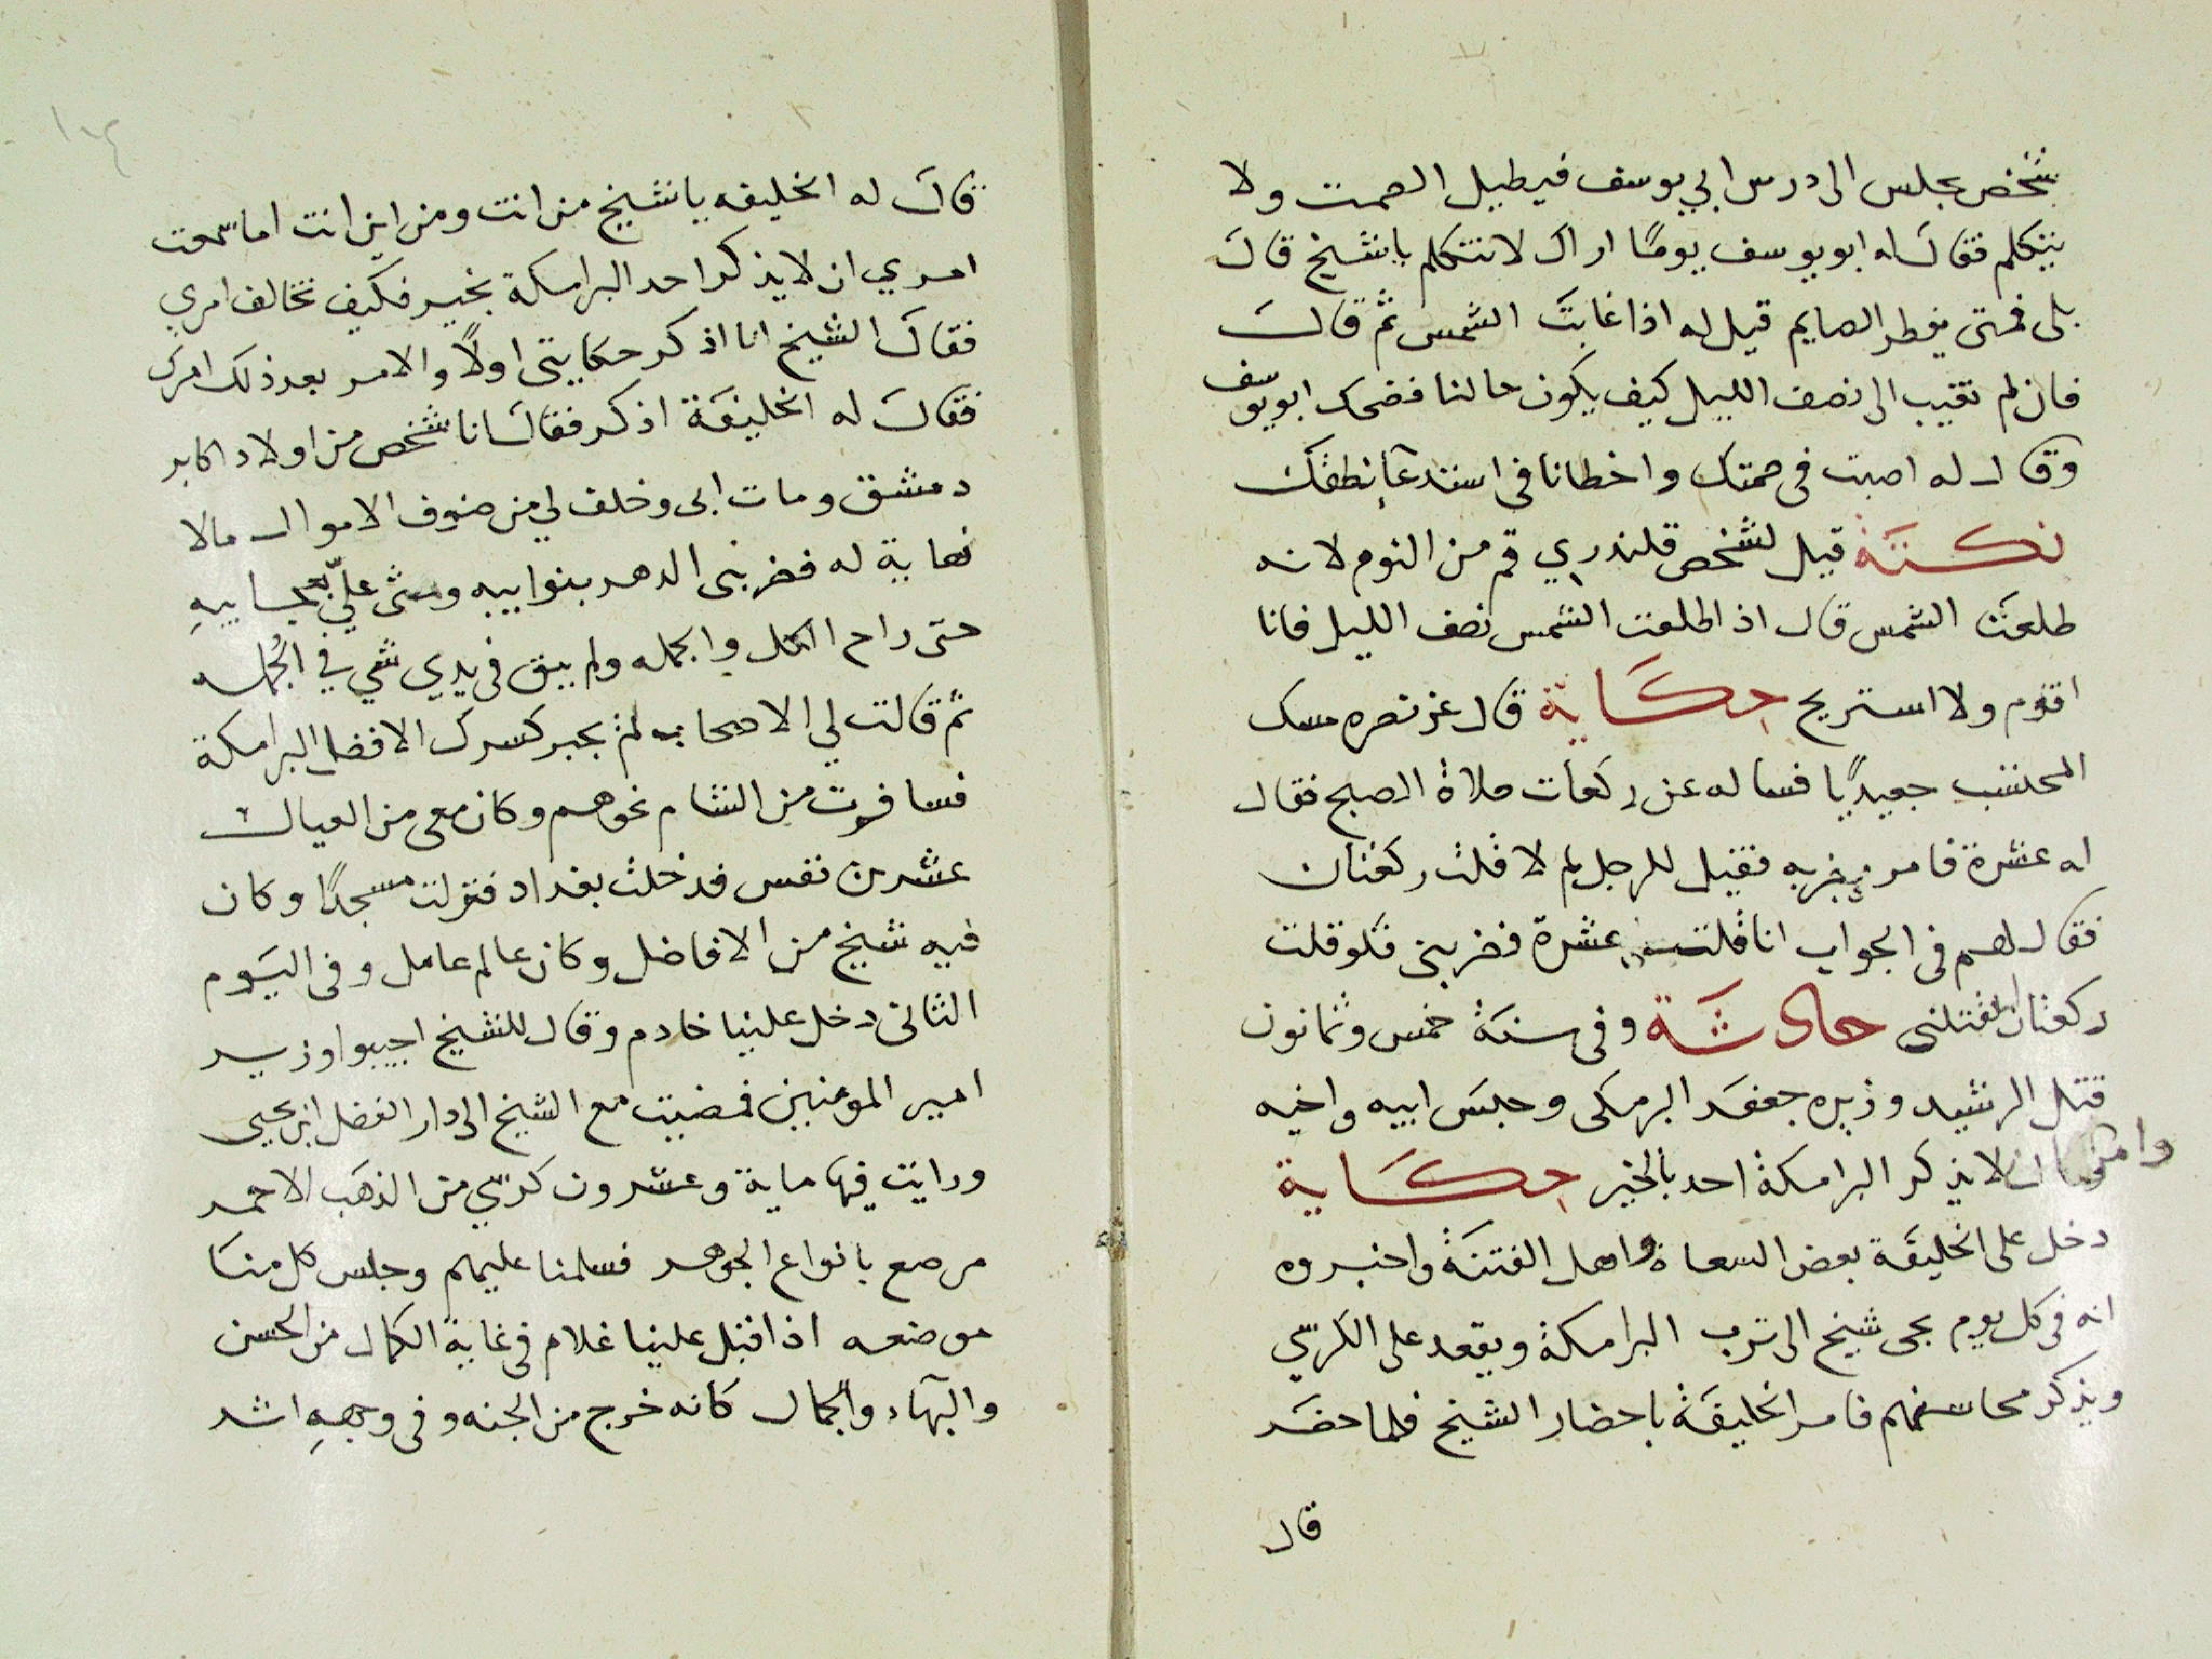 شخص يجلس الى درس ابي يوسف فيطيل الصمت ولا
يتكلم فقال له ابو يوسف يومًا اراك لا تتكلم يا شيخ قال
بلى فمتى يفطر الصايم قيل له اذا غابت الشمس ثم قال
فان لم تغيب الى نصف الليل كيف يكون حالنا فضحك ابو يوسف
وقال له اصبت في صمتك واخطانا في استدعآء نطقك
نكتة قيل لشخص قلندري قم من النوم لانه
طلعت الشمس قال اذ اطلعت الشمس نصف الليل فانا
اقوم ولا استريح حكاية قال عز نصره مسك
المحتسب جعيديًا فساله عن ركعات صلاة الصبح فقال
له عشرة فامر بضربه فقيل للرجل لم لا قلت ركعتان
فقال لهم في الجواب انا قلت عشرة فضربني فلو قلت
ركعتان لقتلني حادثة وفي سنة خمس وثمانون
قتل الرشيد وزيره جعفر البرمكي وحبس ابيه واخيه
وامر ان لا يذكر البرامكة احد بالخير حكاية
دخل على الخليفة بعض السعاة واهل الفتنة واخبروه
انه في كل يوم يجى شيخ الى ترب البرامكة ويقعد على الكرسي
ويذكر محاسنهم فامر الخليفة باحضار الشيخ فلما حضر
قال
١٠٤
قال له الخليفه يا شيخ من انت ومن اين انت اما سمعت
امري ان لا يذكر احد البرامكة بخير فكيف تخالف امري
فقال الشيخ انا اذكر حكايتي اولًا والامر بعد ذلك امرك
فقال له الخليفة اذكر فقال انا شخص من اولاد اكابر
دمشق ومات ابي وخلف لي من صنوف الاموال مالا
نهاية له فضربني الدهر بنوايبه وسثى عليّ بمصايبهِ
حتى راح الكل والجمله ولم يبق في يدي شي في الجُمله
ثم قالت لي الاصحاب لم يجبر كسرك الا فضل البرامكة
فسافرت من الشام نحوهم وكان معي من العيال
عشرين نفس فدخلت بغداد فنزلت مسجدًا وكان
فيه شيخ من الافاضل وكان عالم عامل وفي اليوم
الثاني دخل علينا خادم وقال للشيخ اجيبوا وزير
امير المومنين فمضيت مع الشيخ الى دار الفضل ابن يحيى
ورايت فيها ماية وعشرون كرسي من الذهب الاحمر
مرصع بانواع الجوهر فسلمنا عليهم وجلس كل منا
موضعه اذ اقبل علينا غلام في غاية الكمال من الحسن
والبهآء والجمال كانه خرج من الجنه وفي وجههِ اشد